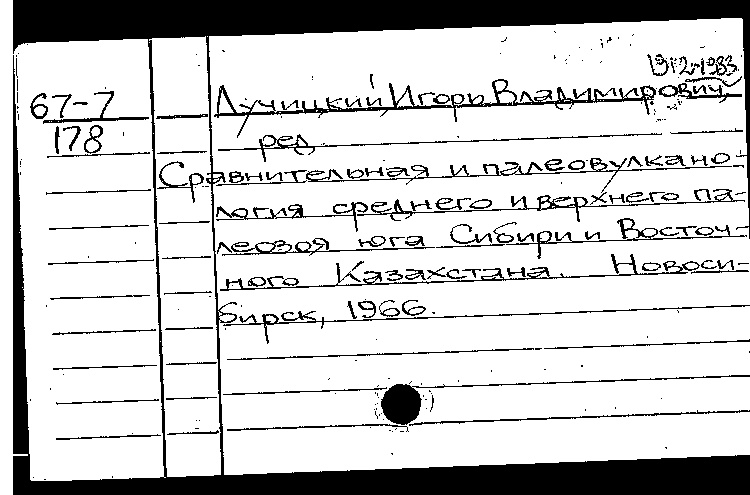 1912-1983
67-7
178
Лучицкий, Игорь Владимирович,
ред.
Сравнительная и палеовулкано-
логия среднего и верхнего па-
леозоя юга Сибири и Восточ-
ного Казахстана. Новоси-
бирск, 1966.